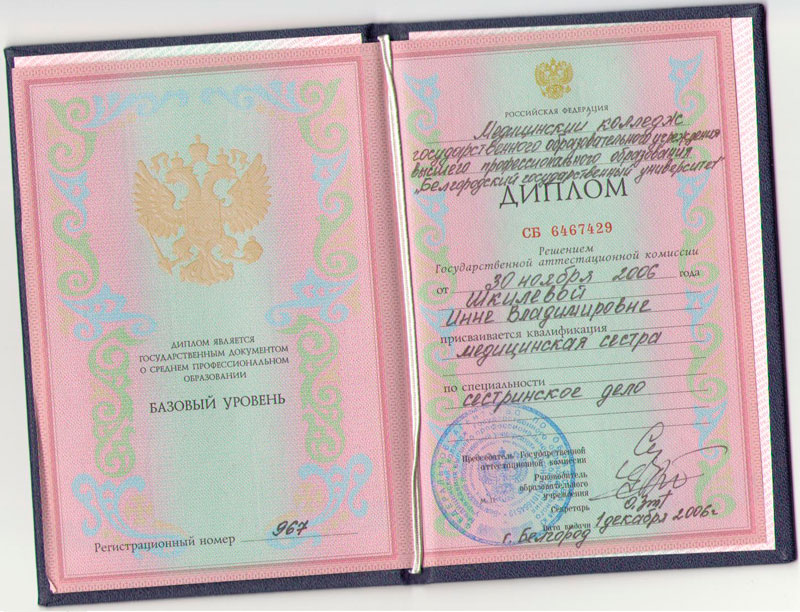 ДИПЛОМ ЯВЛЯЕТСЯ
ГОСУДАРСТВЕННЫМ ДОКУМЕНТОМ
О СРЕДНЕМ ПРОФЕССИОНАЛЬНОМ
ОБРАЗОВАНИИ
БАЗОВЫЙ УРОВЕНЬ
Регистрационный номер 967
РОССИЙСКАЯ ФЕДЕРАЦИЯ
Медицинский колледж
государственного образовательного учреждения
высшего профессионального образования
"Белгородский государственный университет"
ДИПЛОМ
СБ 6467429
Решением
Государственной аттестационной комиссии
от 30 ноября 2006 года
Шкилевой
Инне Владимировне
присваивается квалификация
медицинская сестра
по специальности
сестринское дело
Председатель Государственной
аттестационной комиссии
Руководитель
образовательного
учреждения
Секретарь
Дата выдачи 1 декабря 2006 г
г. Белгород